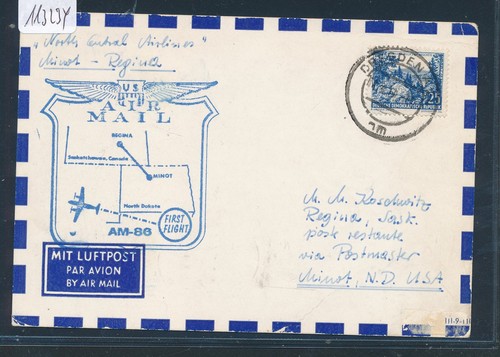 113294
"North Central Airlines"
Minot - Regina
US
AIR
MAIL
REGINA
Saskatchewan, Canada
MINOT
North Dakota
FIRST
FLIGHT
AM-86
MIT LUFTPOST
PAR AVION
BY AIR MAIL
DRESDEN
25
DEUTSCHE DEMOKRATISCHE REPUBLIK
M. M. Koschwitz
Regina, Sask.
post restante
via Postmaster
Minot, N.D. USA